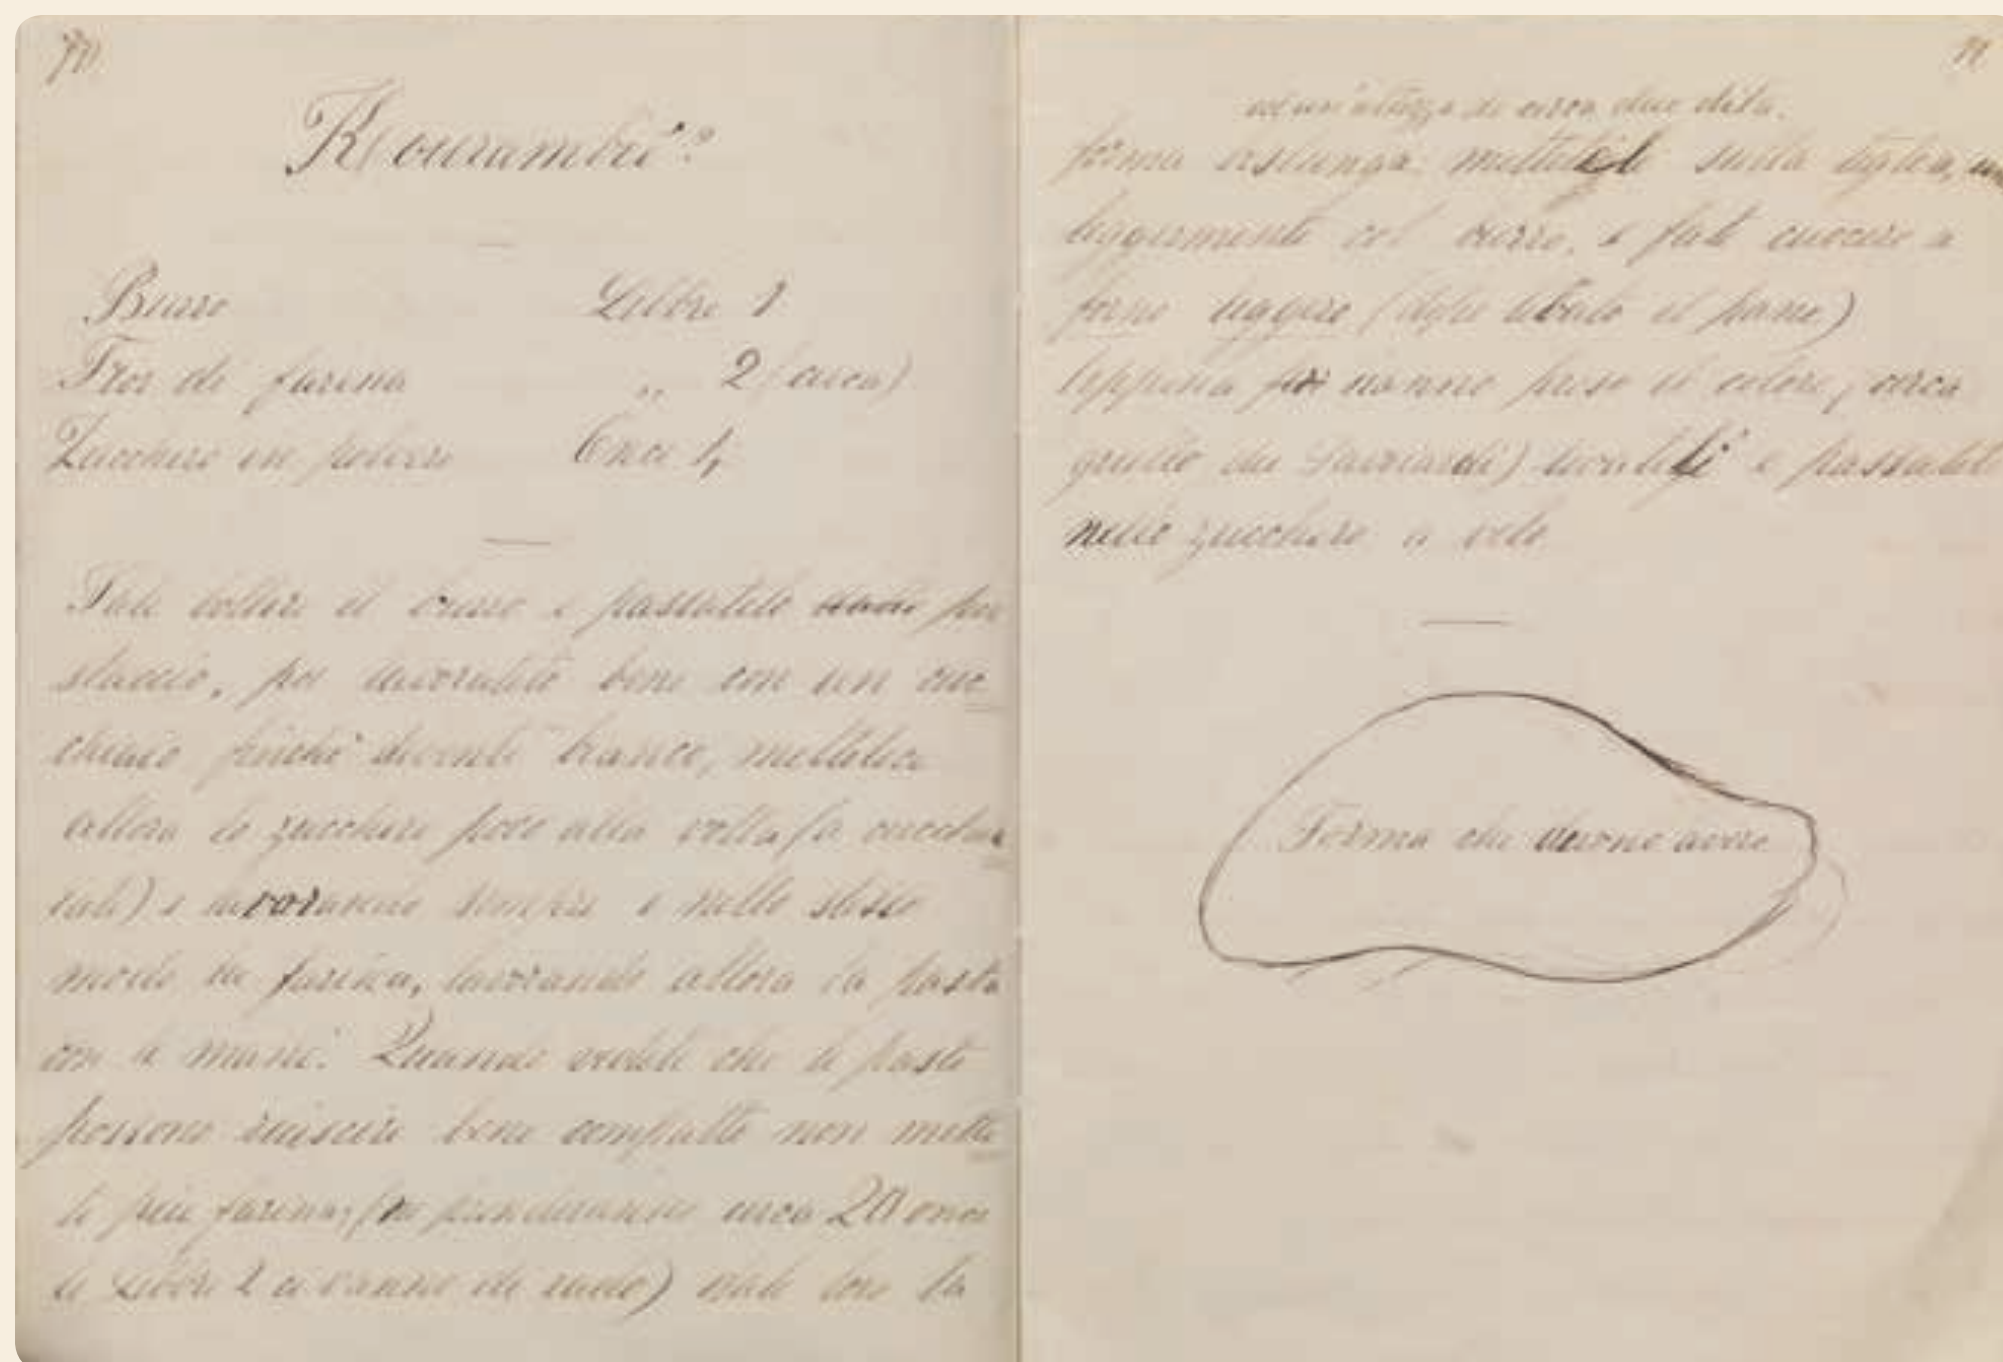 70
Kourambié?
Burro Libbre 1
Fior di farina " 2 (circa)
Zucchero in polvere Once 1
Fate bollire il burro e passatelo per
staccio, poi lavoratelo bene con un cuc
chiaio finchè diventi bianco, metteteci
allora lo zucchero poco alla volta (a cucchia
iate) e lavorando sempre e nello stesso
modo la farina, lavorando allora la pasta
con le mani. Quando vedete che le paste
possono riuscire bene compatte non mette
te più farina, (ne prenderanno circa 20 once
le Libbre 2 ci vanno di rado) date loro la
71
ed un'altezza di circa due dita.
forma oslunga. mettetele sulla teglia,
leggermente col burro, e fate cuocere a
forno leggero (dopo levato il pane)
Appena hanno preso il colore, circa
quello dei Savoiardi) levateli e passateli
nello zucchero a velo
Forma che devono avere